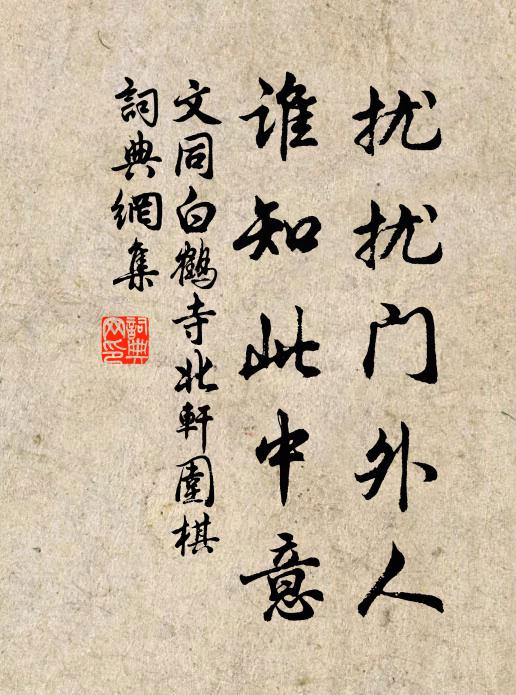 扰扰门外人
谁知此中意
文同白鶴寺北軒圍棋
詞典網集
詞典
网印